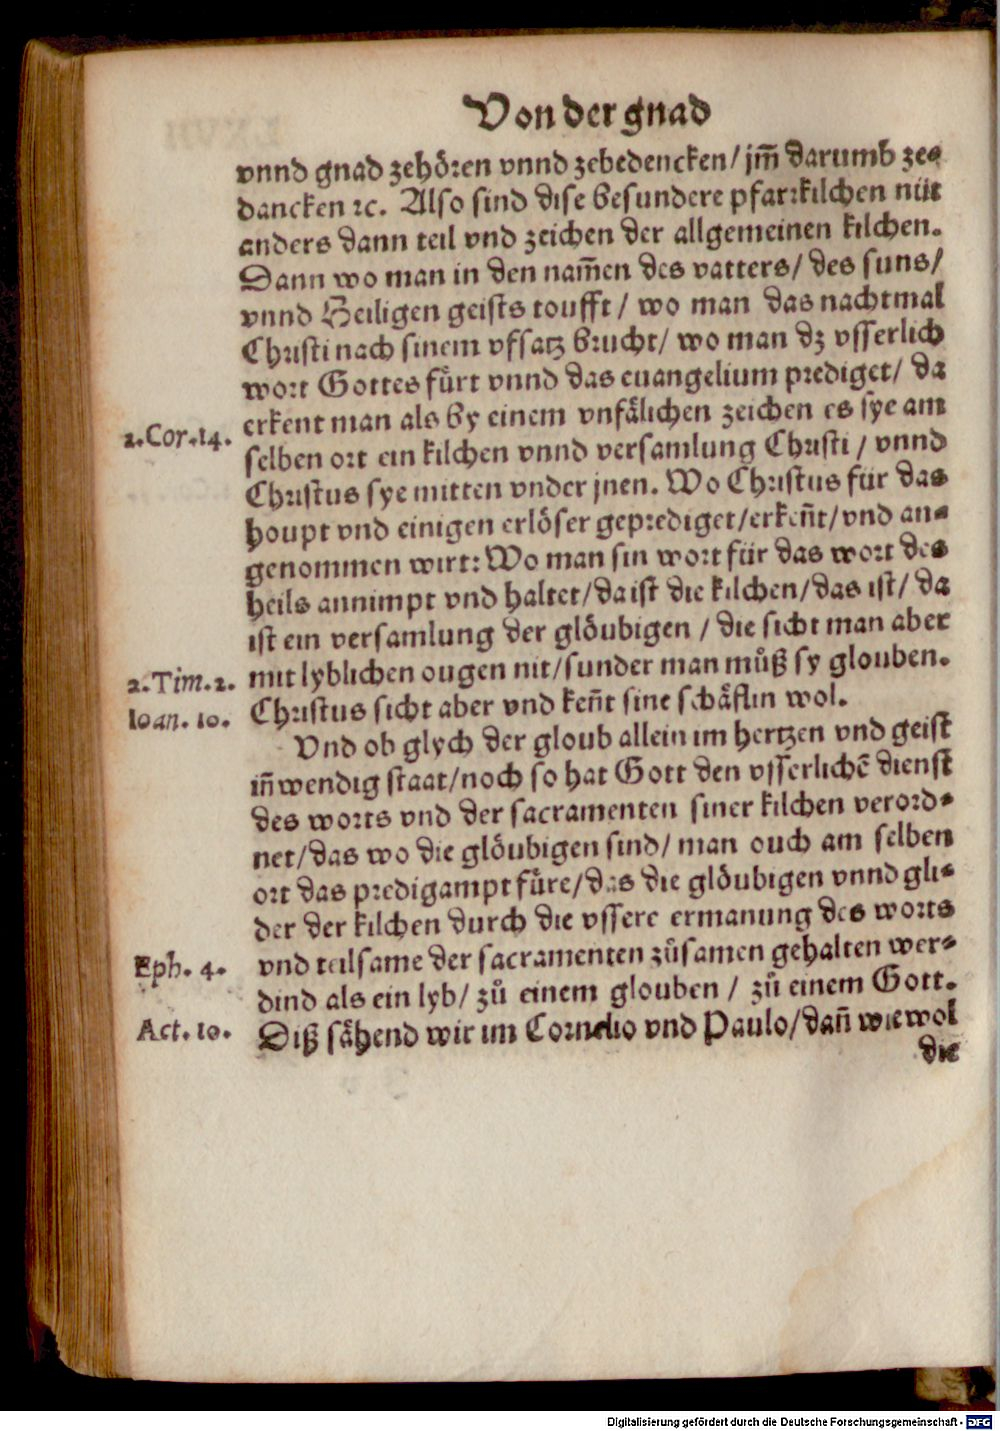 Von der gnad
vnnd gnad zehören vnnd zebedencken/ jm̃ darumb ze⸗
dancken ꝛc. Also sind dise besundere pfarrkilchen nüt
anders dann teil vnd zeichen der allgemeinen kilchen.
Dann wo man in den nam̃en des vatters/ des suns/
vnnd Heiligen geists toufft/ wo man das nachtmal
Christi nach sinem vfsatz brucht/ wo man dz vsserlich
wort Gottes fuͤrt vnnd das euangelium prediget/ da
erkent man als by einem vnfälichen zeichen es sye am
1.Cor.14.
selben ort ein kilchen vnnd versamlung Christi/ vnnd
Christus sye mitten vnder jnen. Wo Christus für das
houpt vnd einigen erlöser geprediget/erkeñt/vnd an⸗
genommen wirt: Wo man sin wort für das wort des
heils annimpt vnd haltet/da ist die kilchen/das ist/ da
ist ein versamlung der glöubigen/ die sicht man aber
2.Tim.2.
mit lyblichen ougen nit/sunder man muͦß sy glouben.
Ioan. 10.
Christus sicht aber vnd keñt sine schäflin wol.
Vnd ob glych der gloub allein im hertzen vnd geist
iñwendig staat/noch so hat Gott den vsserlichẽ dienst
des worts vnd der sacramenten siner kilchen verord⸗
net/das wo die glöubigen sind/ man ouch am selben
ort das predigampt fuͤre/das die glöubigen vnnd gli⸗
der der kilchen durch die vssere ermanung des worts
Eph. 4.
vnd teilsame der sacramenten zuͦsamen gehalten wer⸗
dind als ein lyb/ zuͦ einem glouben/ zuͦ einem Gott.
Act. 10.
Diß sähend wir im Cornelio vnd Paulo/dañ wiewol
die
Digitalisierung gefördert durch die Deutsche Forschungsgemeinschaft - DFG